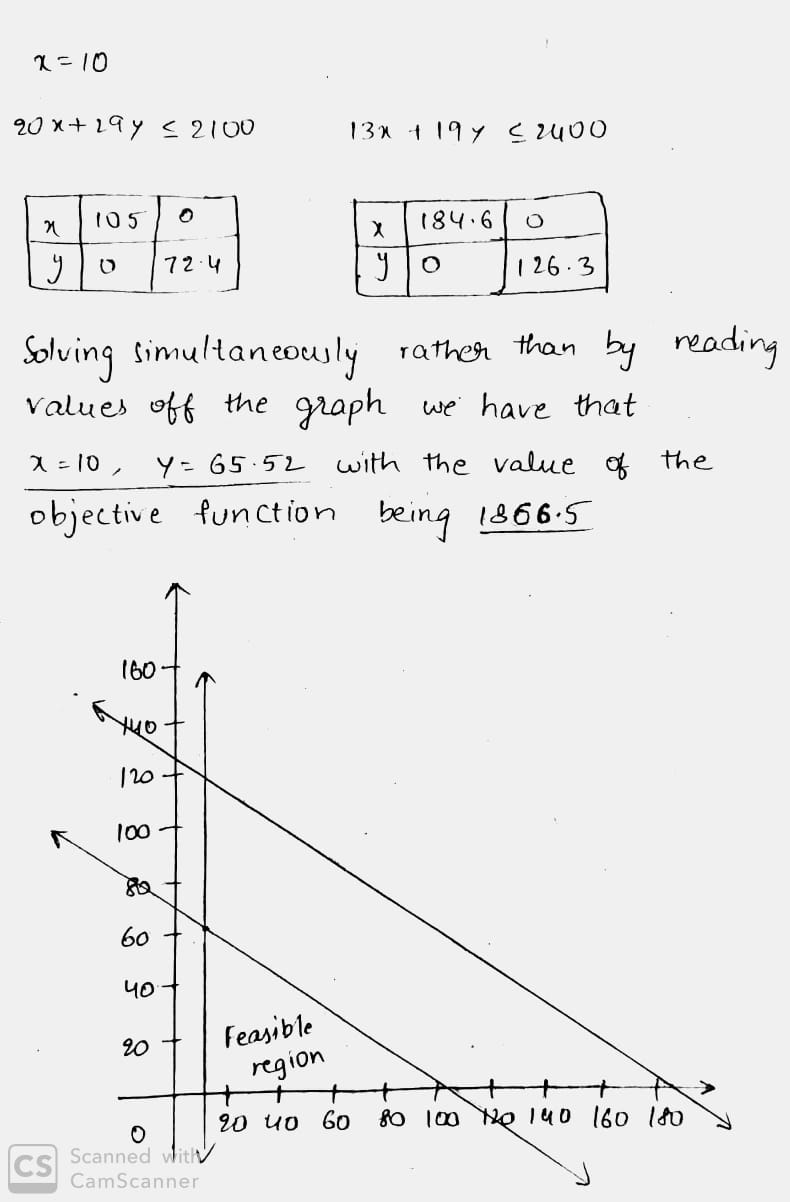 x = 10
20x + 29y ≤ 2100
13x + 19y ≤ 2400
x 105 0
y 0 72.4
x 184.6 0
y 0 126.3
Solving simultaneously rather than by reading
values off the graph we have that
x = 10, y = 65.52 with the value of the
objective function being 1866.5
160
140
120
100
80
60
40
20
Feasible
region
0
20 40 60 80 100 120 140 160 180
CS Scanned with
CamScanner